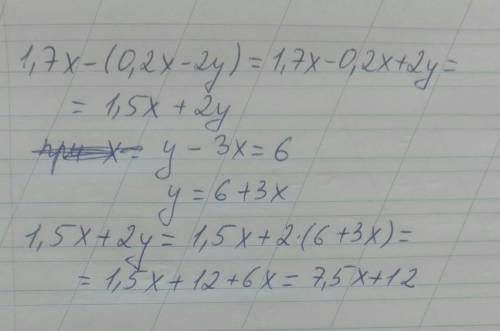 1,7x-(0,2x-2y)=1,7x-0,2x+2y=
= 1,5x+2y
при x= y-3x=6
y=6+3x
1,5x+2y=1,5x+2·(6+3x)=
=1,5x+12+6x=7,5x+12